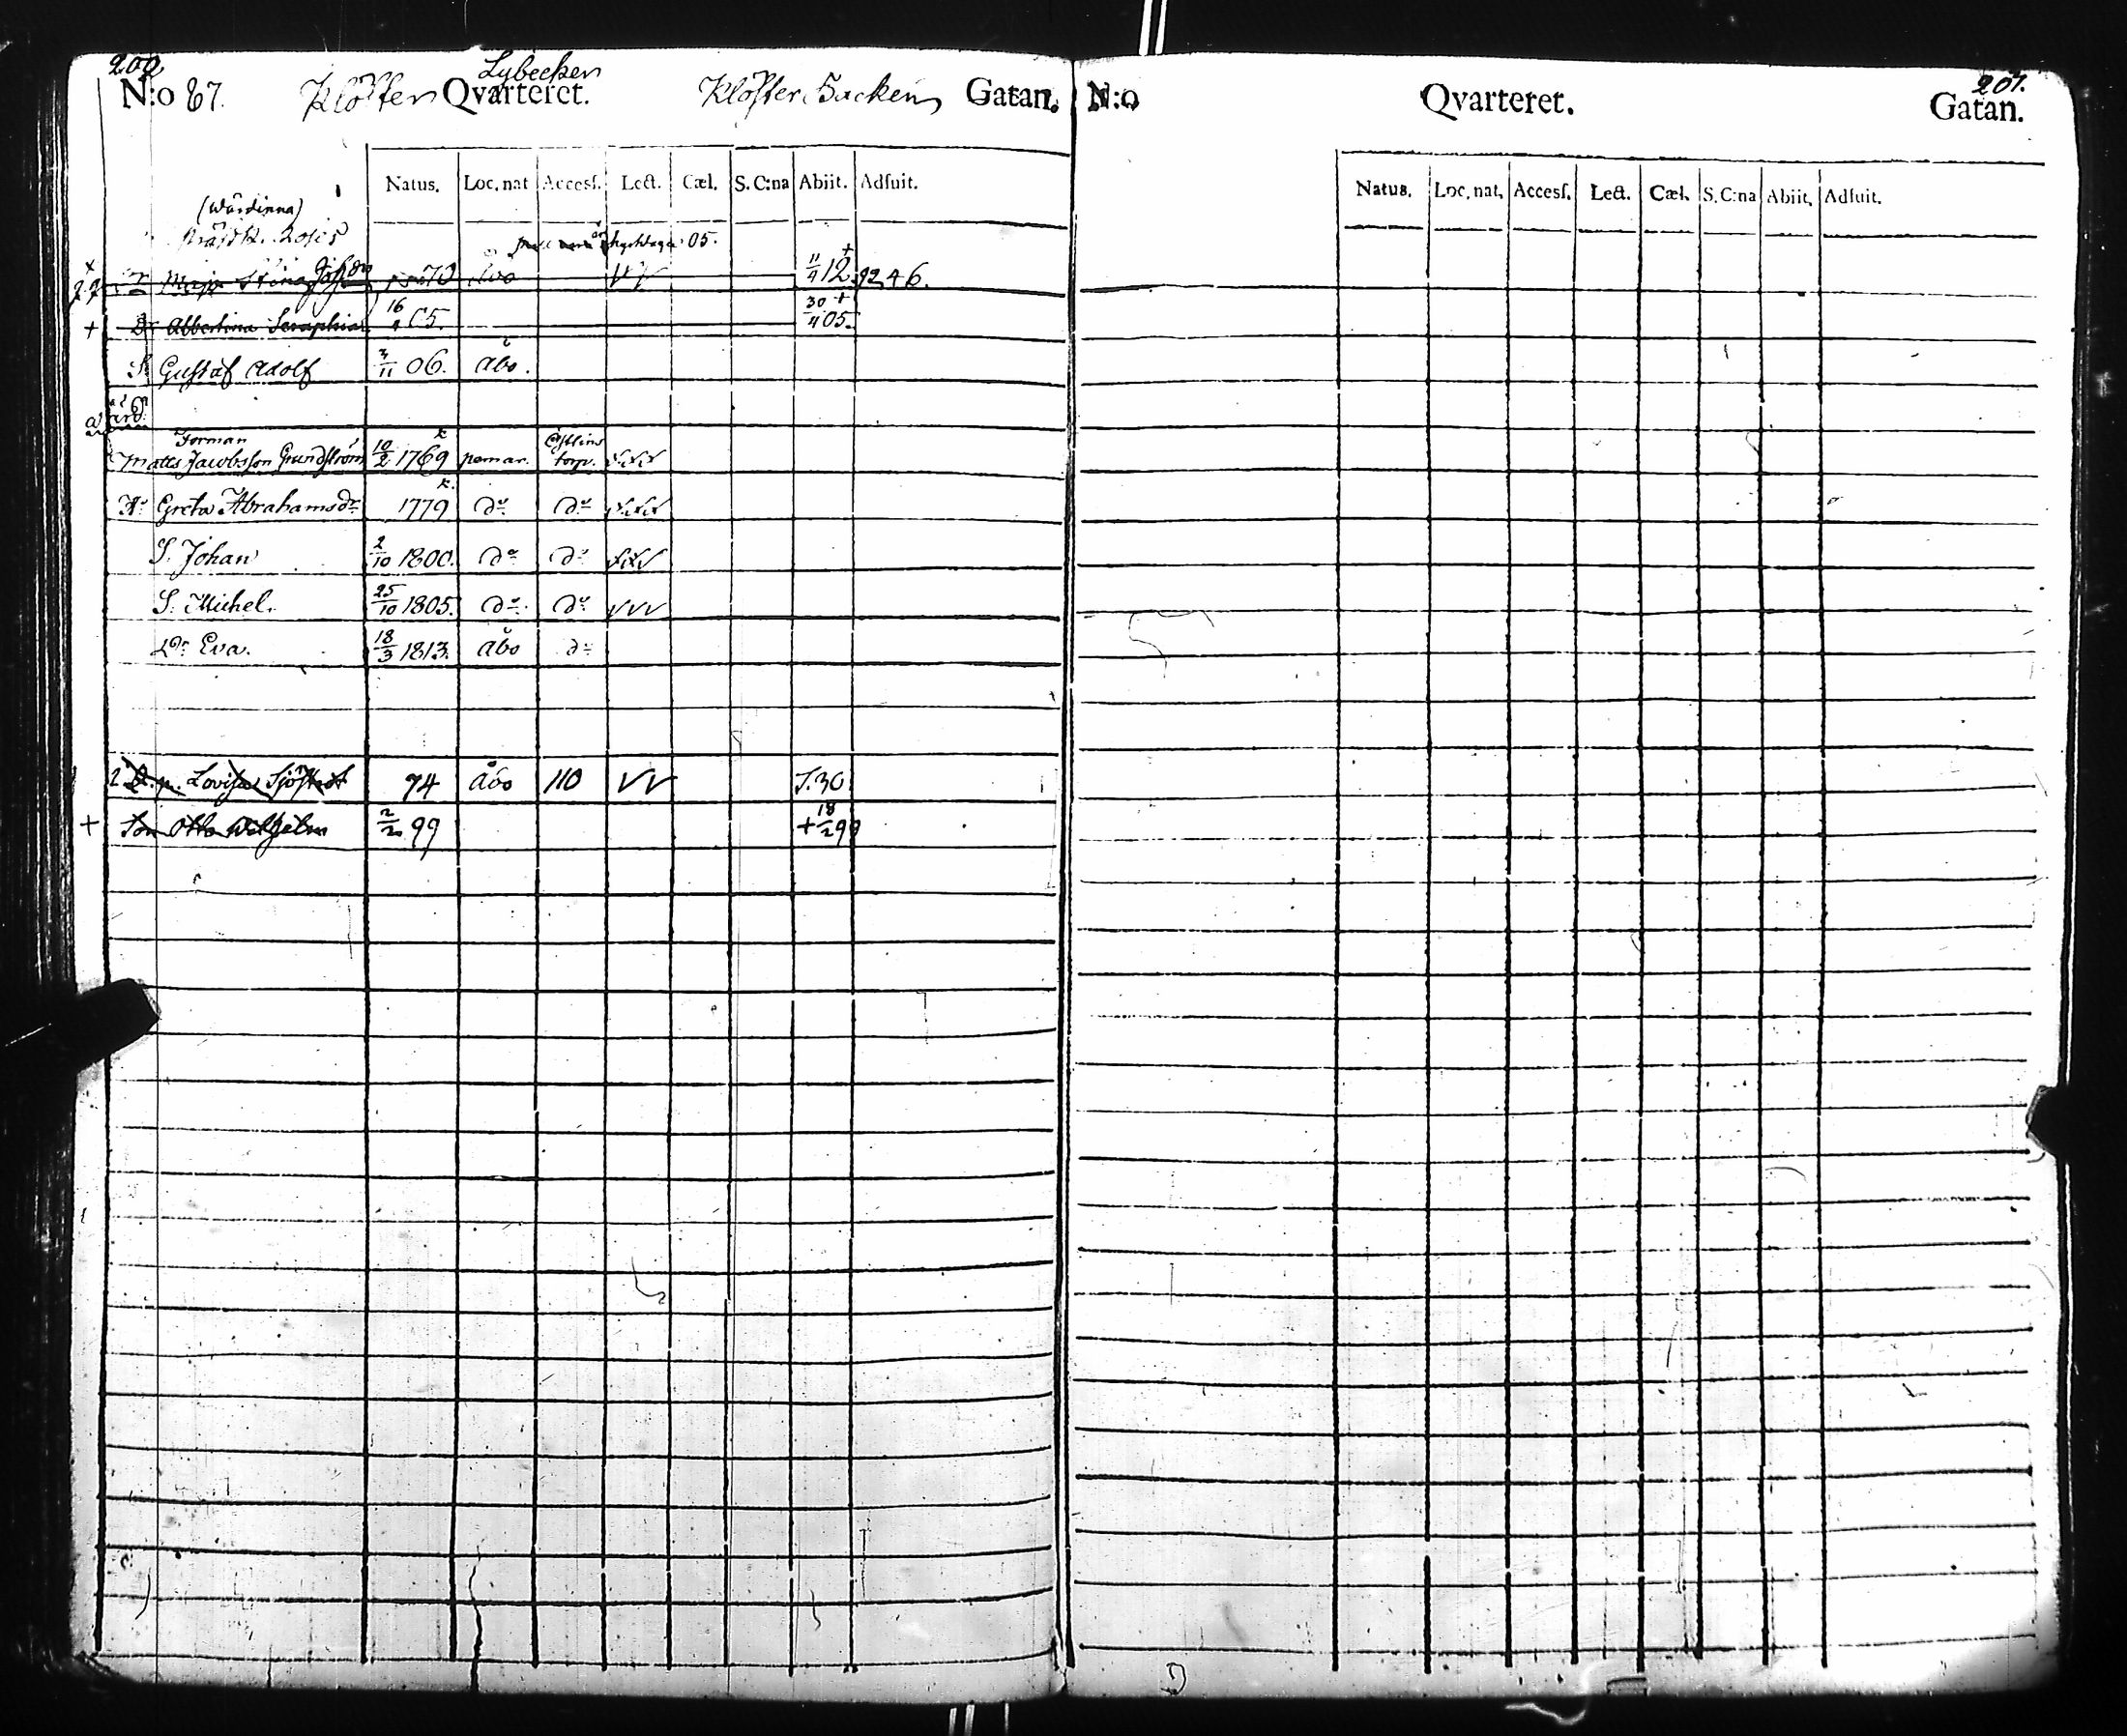 200
Lybecken
N:o 87. Kloster Qvarteret. Kloster Backen Gatan.
Natus. Loc. nat Accesſ. Lect. Cæl. S. C:na Abiit. Adfuit.
(Wärdinna)
05.
Maja Stina 70 Åbo 11/9 12 + 92 46.
+ Dr Albertina Seraphia 16/4 05. 30/4 05. +
S. Gustaf Adolf 3/11 06. Åbo.
Forman
Matts Jacobsson Grundström 10/2 1769 pemar. torp.
Hu Greta Abrahamsdr 1779 do do
S. Johan 2/10 1800. do do
S. Michel. 25/10 1805. do do
Dr Eva. 18/3 1813. Åbo do
Lovisa Sjöstedt 74 Åbo 110 S.30
+ Son Otto Wilhelm 2/2 99 + 18/2 99
201.
N:o Qvarteret. Gatan.
Natus. Loc. nat, Accesſ. Lect. Cæl. S. C:na Abiit, Adfuit.